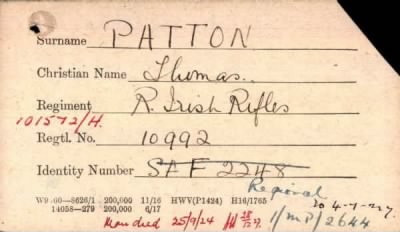 Surname PATTON
Christian Name Thomas.
Regiment R. Irish Rifles
101572/H.
Regtl. No. 10992
Identity Number SAF 2248
Regional
W9 60—8626/1 200,000 11/16 HWV(P1424) H16/1765
20 4-7-27
14058—279 200,000 6/17
25/9/24 28/12/27. 1/MP/2644